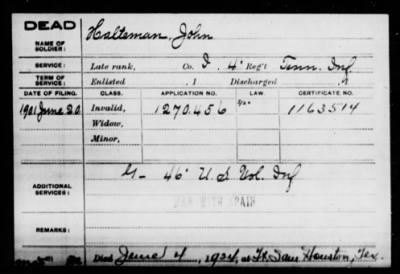 DEAD
NAME OF SOLDIER: Halteman, John
SERVICE: Late rank, Co. I, 4" Reg't Tenn. Inf
TERM OF SERVICE: Enlisted , 1 Discharged , 1
DATE OF FILING. CLASS. APPLICATION NO. LAW. CERTIFICATE NO.
1901 June 20 Invalid, 1270.456 1163514
Widow,
Minor,
ADDITIONAL SERVICES: G- 46" U.S Vol. Inf
WAR WITH SPAIN
REMARKS:
Died June 4, 1924, at Ft. Sam Houston, Tex.